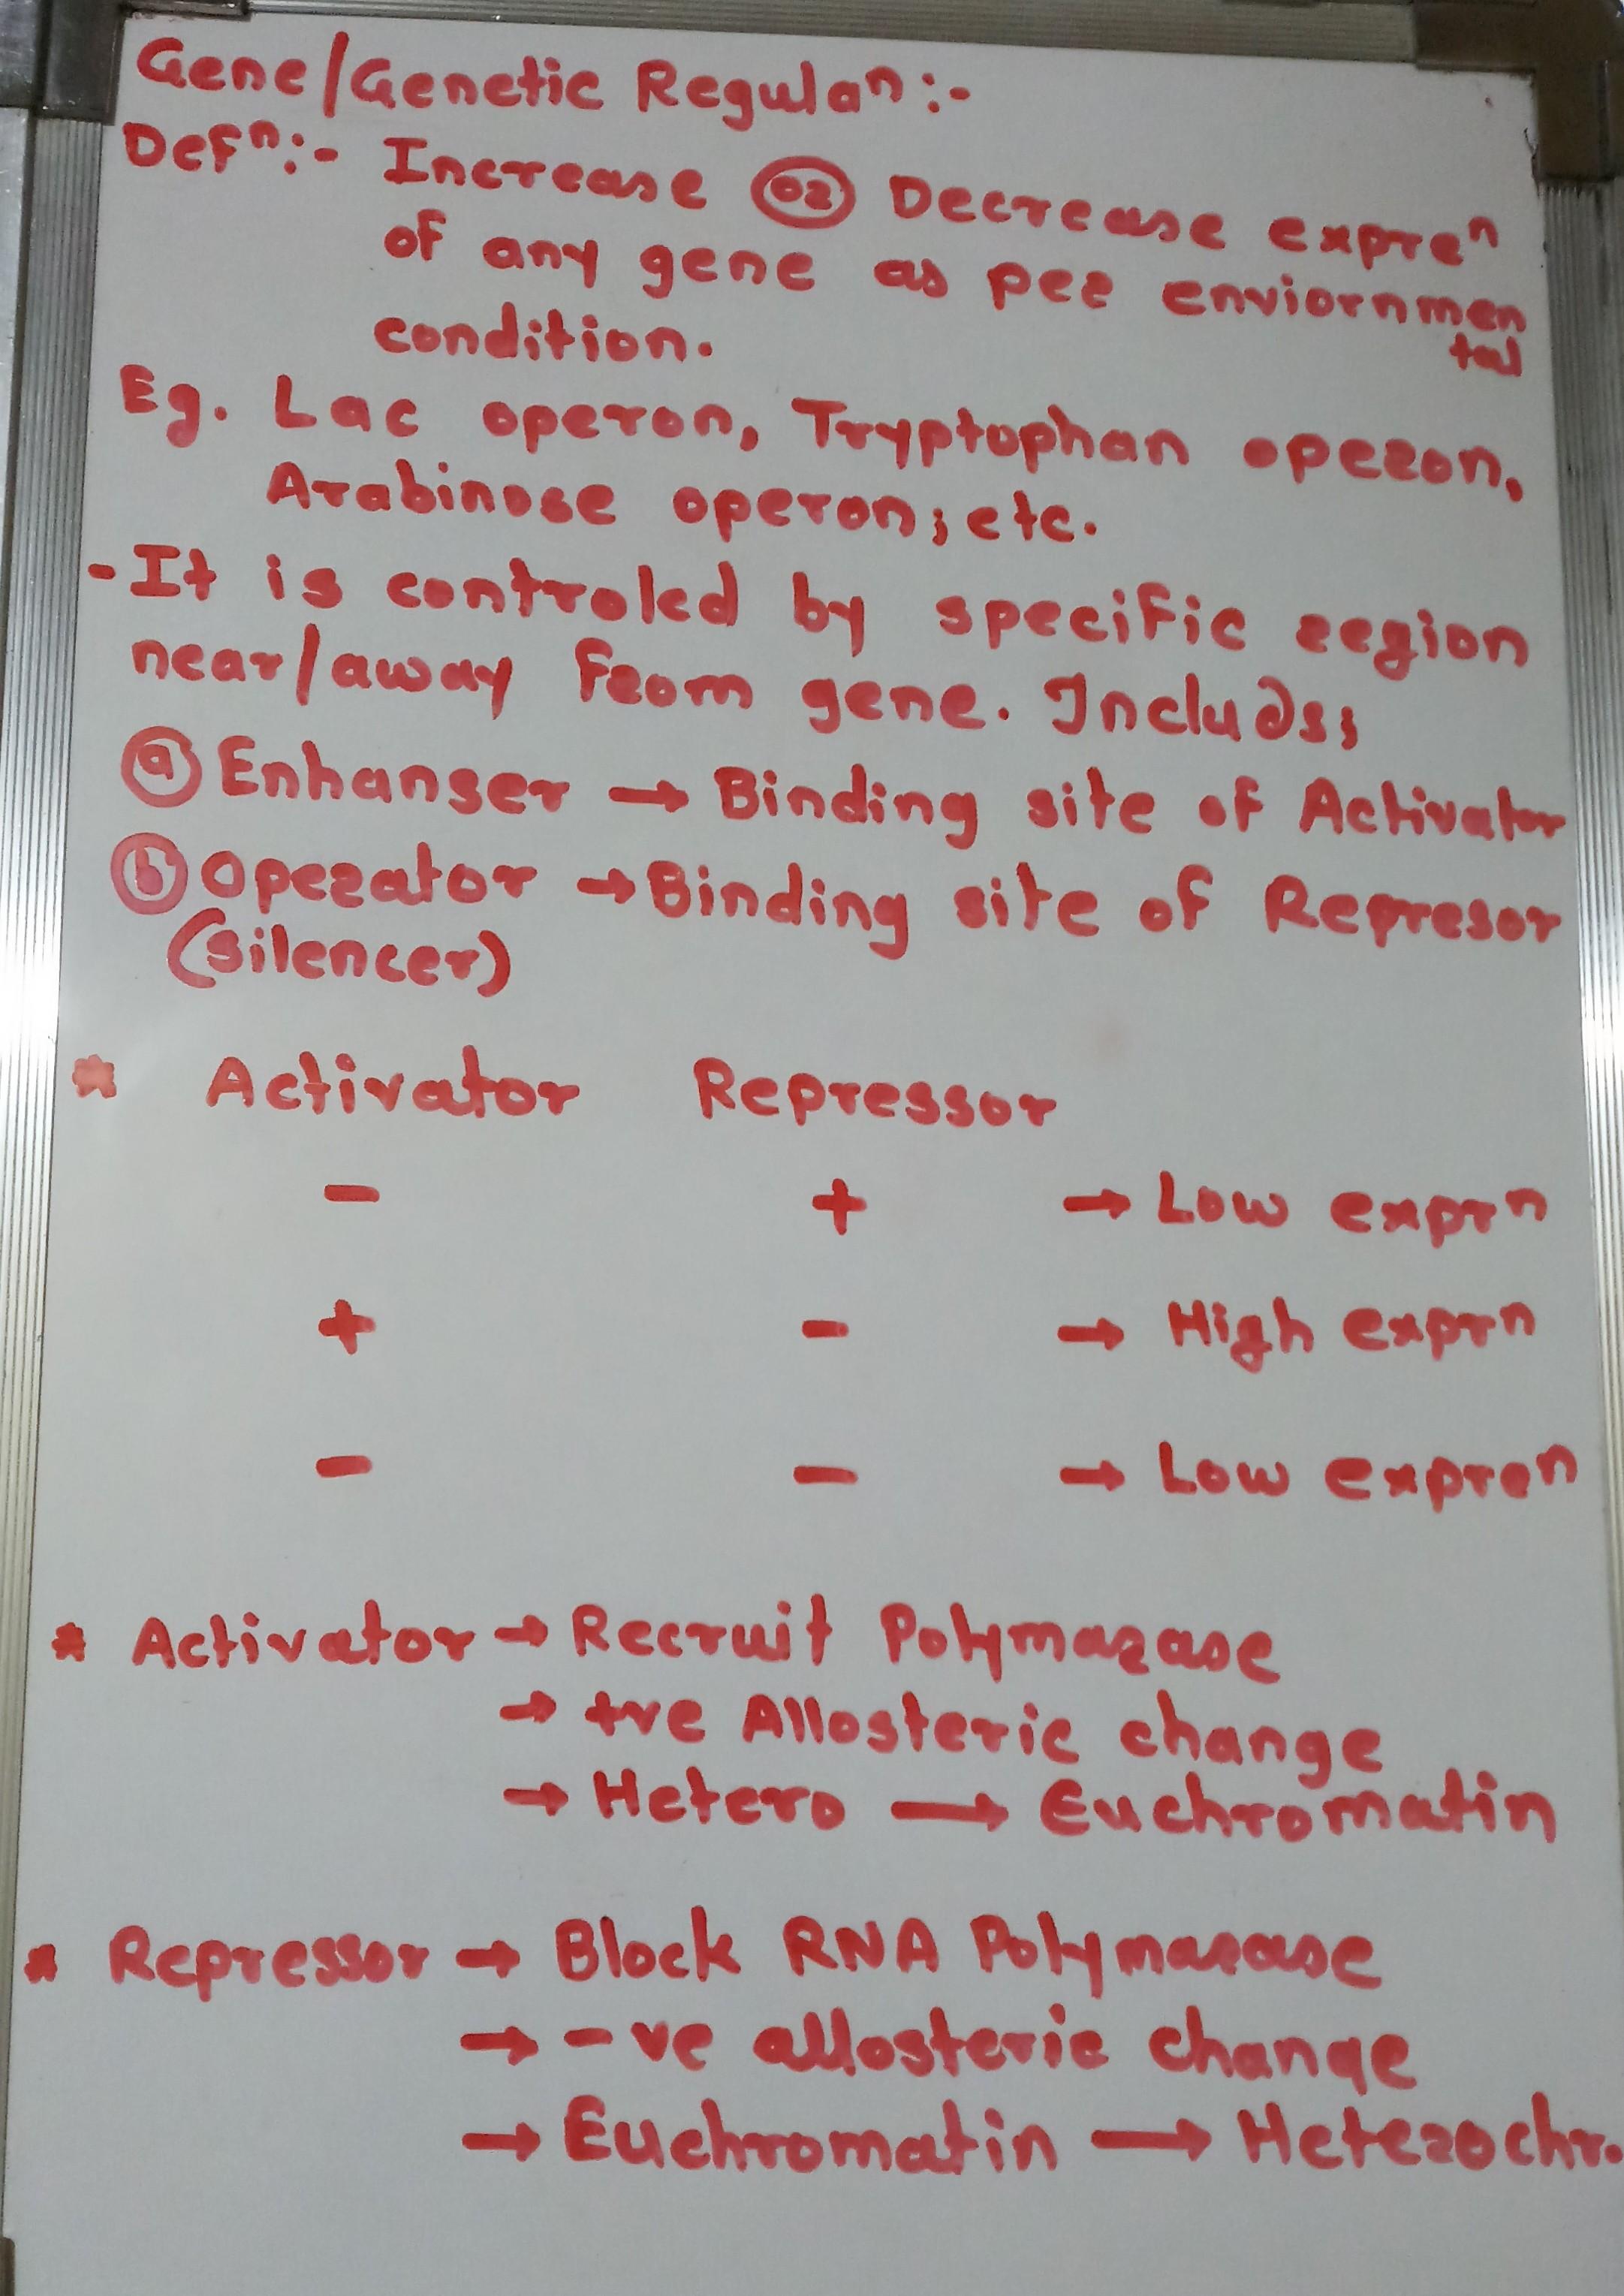 Gene/Genetic Regulaⁿ:-
Defⁿ:- Increase or Decrease expreⁿ
of any gene as per enviornmen
tal
condition.
Eg. Lac operon, Tryptophan operon,
Arabinose operon; etc.
- It is controled by specific region
near/away from gene. Includs;
a Enhanser → Binding site of Activator
b Operator → Binding site of Represor
(silencer)
* Activator Repressor
- + → Low exprⁿ
+ - → High exprⁿ
- - → Low expreⁿ
* Activator → Recruit Polymarase
→ +ve Allosteric change
→ Hetero → Euchromatin
* Repressor → Block RNA Polymarase
→ -ve allosteric change
→ Euchromatin → Heterochr.